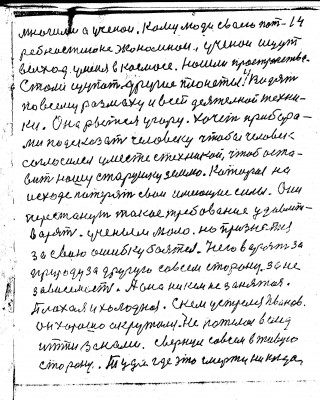 многими а ученои. Кому люди своею пот- 14
ребностью не экономной, ученои ищут
выход ушел в космосе. Нашли пространство.
Стали щупат другие планеты! Водят
по всему размаху и всей деятелной техни-
ки. Она рвется угору. Хочет прибора-
ми подсказат человеку чтобы человек
согласился вместе с техникой, чтоб оста-
вит нашу старущую землю. Которая на
исходе потерят свои имеющие силы. Они
перестанут такое требование удовлит-
варят. ученым мало. но признатся
за свою ошибку боятся. Чего варят за
природу за другую совсем сторону, за не
зависимост. А она никем не занятоя.
Плохая и холодноя. С кем устрелся Иванов.
он хорошо окружоли. Не пошел в след
итти за ними. свернул совсем в живую
сторону. Туда где это смерти никогда,